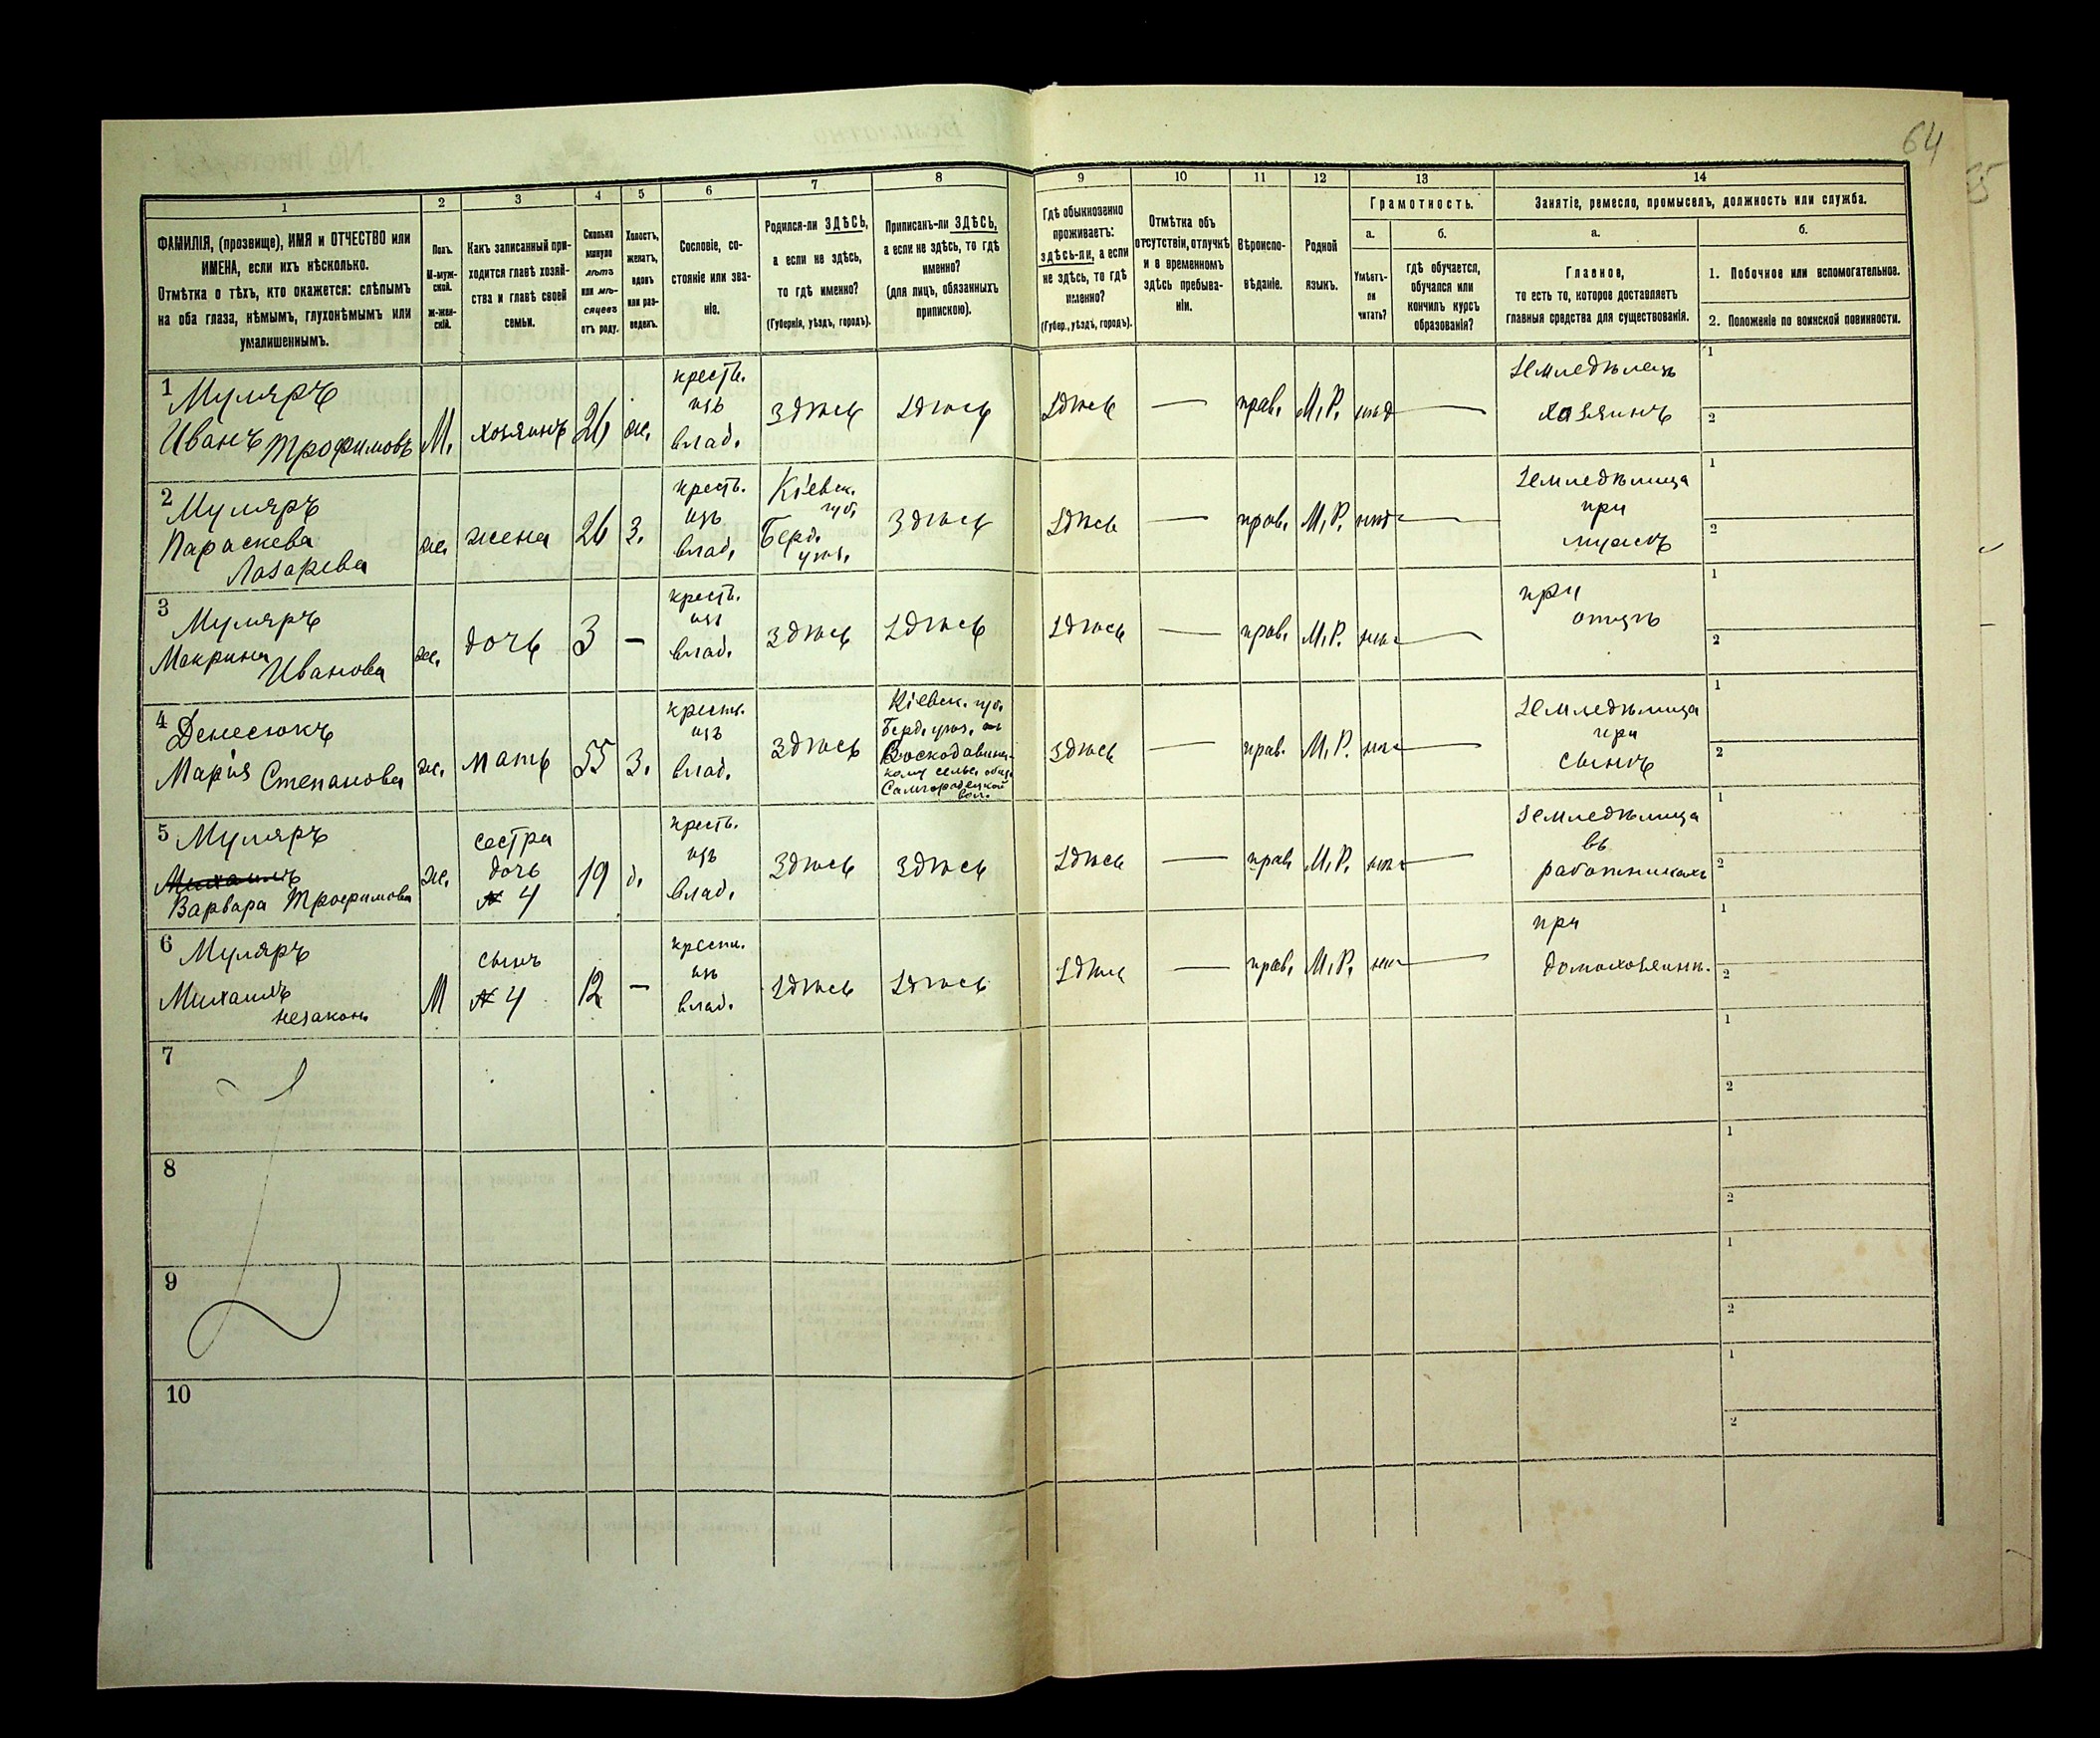 64
1
2
3
4
5
6
7
8
9
10
11
12
13
14
ФАМИЛІЯ, (прозвище), ИМЯ и ОТЧЕСТВО или
ИМЕНА, если ихъ нѣсколько.
Отмѣтка о тѣхъ, кто окажется: слѣпымъ
на оба глаза, нѣмымъ, глухонѣмымъ или
умалишеннымъ.
Полъ.
М-муж-
ской.
Ж-жен-
скій.
Какъ записанный при-
ходится главѣ хозяй-
ства и главѣ своей
семьи.
Сколько
минуло
лѣтъ
или мѣ-
сяцевъ
отъ роду.
Холостъ,
женатъ,
вдовъ
или раз-
веденъ.
Сословіе, со-
стояніе или зва-
ніе.
Родился-ли ЗДѢСЬ,
а если не здѣсь,
то гдѣ именно?
(Губернія, уѣздъ, городъ).
Приписанъ-ли ЗДѢСЬ,
а если не здѣсь, то гдѣ
именно?
(для лицъ, обязанныхъ
припискою).
Гдѣ обыкновенно
проживаетъ:
здѣсь-ли, а если
не здѣсь, то гдѣ
именно?
(Губер., уѣздъ, городъ).
Отмѣтка объ
отсутствіи, отлучкѣ
и о временномъ
здѣсь пребыва-
ніи.
Вѣроиспо-
вѣданіе.
Родной
языкъ.
Грамотность.
а.
Умѣетъ-
ли
читать?
б.
Гдѣ обучается,
обучался или
кончилъ курсъ
образованія?
Занятіе, ремесло, промыселъ, должность или служба.
а.
Главное,
то есть то, которое доставляетъ
главныя средства для существованія.
б.
1. Побочное или вспомогательное.
2. Положеніе по воинской повинности.
1 Муляръ
Иванъ Трофимовъ
М.
хозяинъ
26
ж.
кресть.
изъ
влад.
Здѣсь
Здѣсь
Здѣсь
—
прав.
М.Р.
—
Земледѣлецъ
хозяинъ
1
2
2 Муляръ
Параскева
Лазарева
ж.
жена
26
З.
кресть.
изъ
влад.
Кіевск.
губ.
Берд.
уѣз.
Здѣсь
Здѣсь
—
прав.
М.Р.
—
Земледѣлица
при
мужѣ
1
2
3 Муляръ
Макрина
Иванова
ж.
дочь
3
–
кресть.
изъ
влад.
Здѣсь
Здѣсь
Здѣсь
—
прав.
М.Р.
—
при
отцѣ
1
2
4 Денесюкъ
Марія Степанова
ж.
мать
55
З.
кресть.
изъ
влад.
Здѣсь
Кіевск. губ.
Берд. уѣз.
Самгородецкой
вол.
Здѣсь
—
прав.
М.Р.
—
Земледѣлица
при
сынѣ
1
2
5 Муляръ
Михаилъ
Варвара Трофимова
ж.
сестра
дочь
№ 4
19
д.
кресть.
изъ
влад.
Здѣсь
Здѣсь
Здѣсь
—
прав.
М.Р.
—
Земледѣлица
въ
работникахъ
1
2
6 Муляръ
Михаилъ
незакон.
М
сынъ
№ 4
12
–
кресть.
изъ
влад.
Здѣсь
Здѣсь
Здѣсь
—
прав.
М.Р.
—
при
домохозяинѣ.
1
2
7
1
2
8
1
2
9
1
2
10
1
2